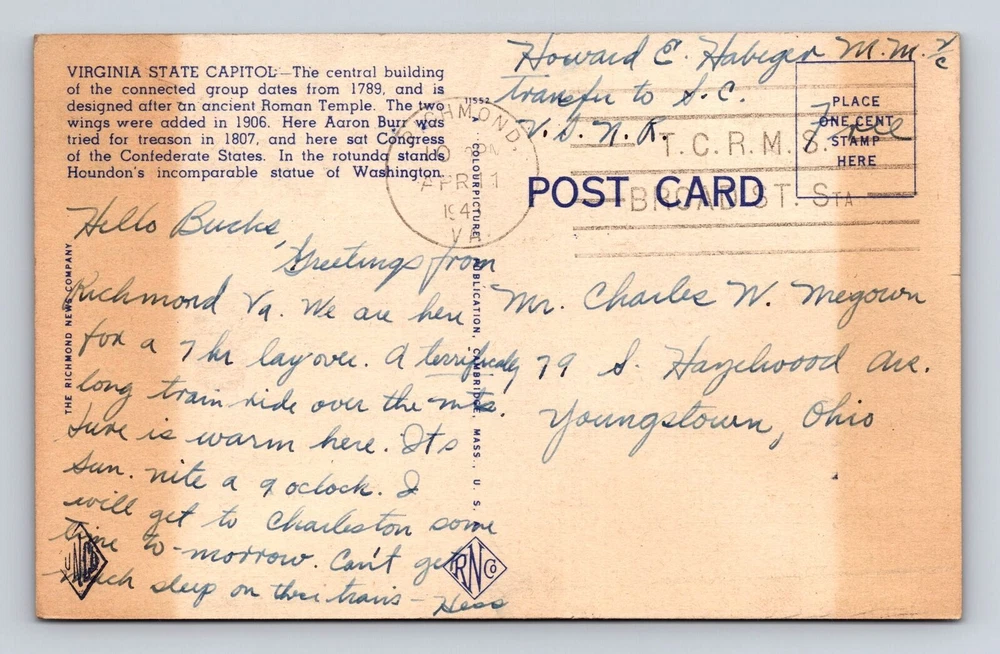 VIRGINIA STATE CAPITOL—The central building
of the connected group dates from 1789, and is
designed after an ancient Roman Temple. The two
wings were added in 1906. Here Aaron Burr was
tried for treason in 1807, and here sat Congress
of the Confederate States. In the rotunda stands
Houdon's incomparable statue of Washington.
Howard E. Habeger M.M. 2/c
transfer to S.C.
U.S.N.R.
Free
PLACE
ONE CENT
STAMP
HERE
RICHMOND.
APR
194
VA
T.C.R.M.S.
BROAD ST. STA
POST CARD
11552
COLOURPICTURE PUBLICATION, CAMBRIDGE, MASS., U. S. A.
THE RICHMOND NEWS COMPANY
Hello Bucks,
Greetings from
Richmond Va. We are here
for a 7 hr layover. A terrifically
long train ride over the mts.
Sure is warm here. Its
Sun. nite a 9 oclock. I
will get to Charleston some
time to-morrow. Can't get
much sleep on these trains —
Mr. Charles W. Megown
79 S. Hazelwood Ave.
Youngstown, Ohio
RNCo